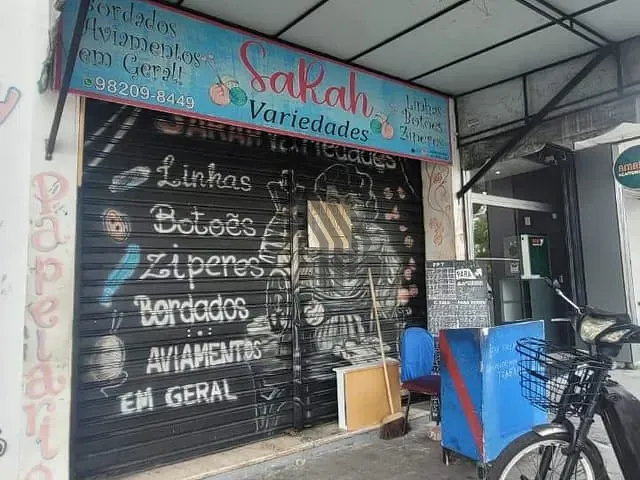 Bordados
Aviamentos
em Geral!
98209-8449
SaRah
Variedades
Linhas
Botoes
Ziperes
SARAH VARIEDADES
Linhas
Botoẽs
Ziperes
Bordados
AVIAMENTOS
EM GERAL
Papelaria